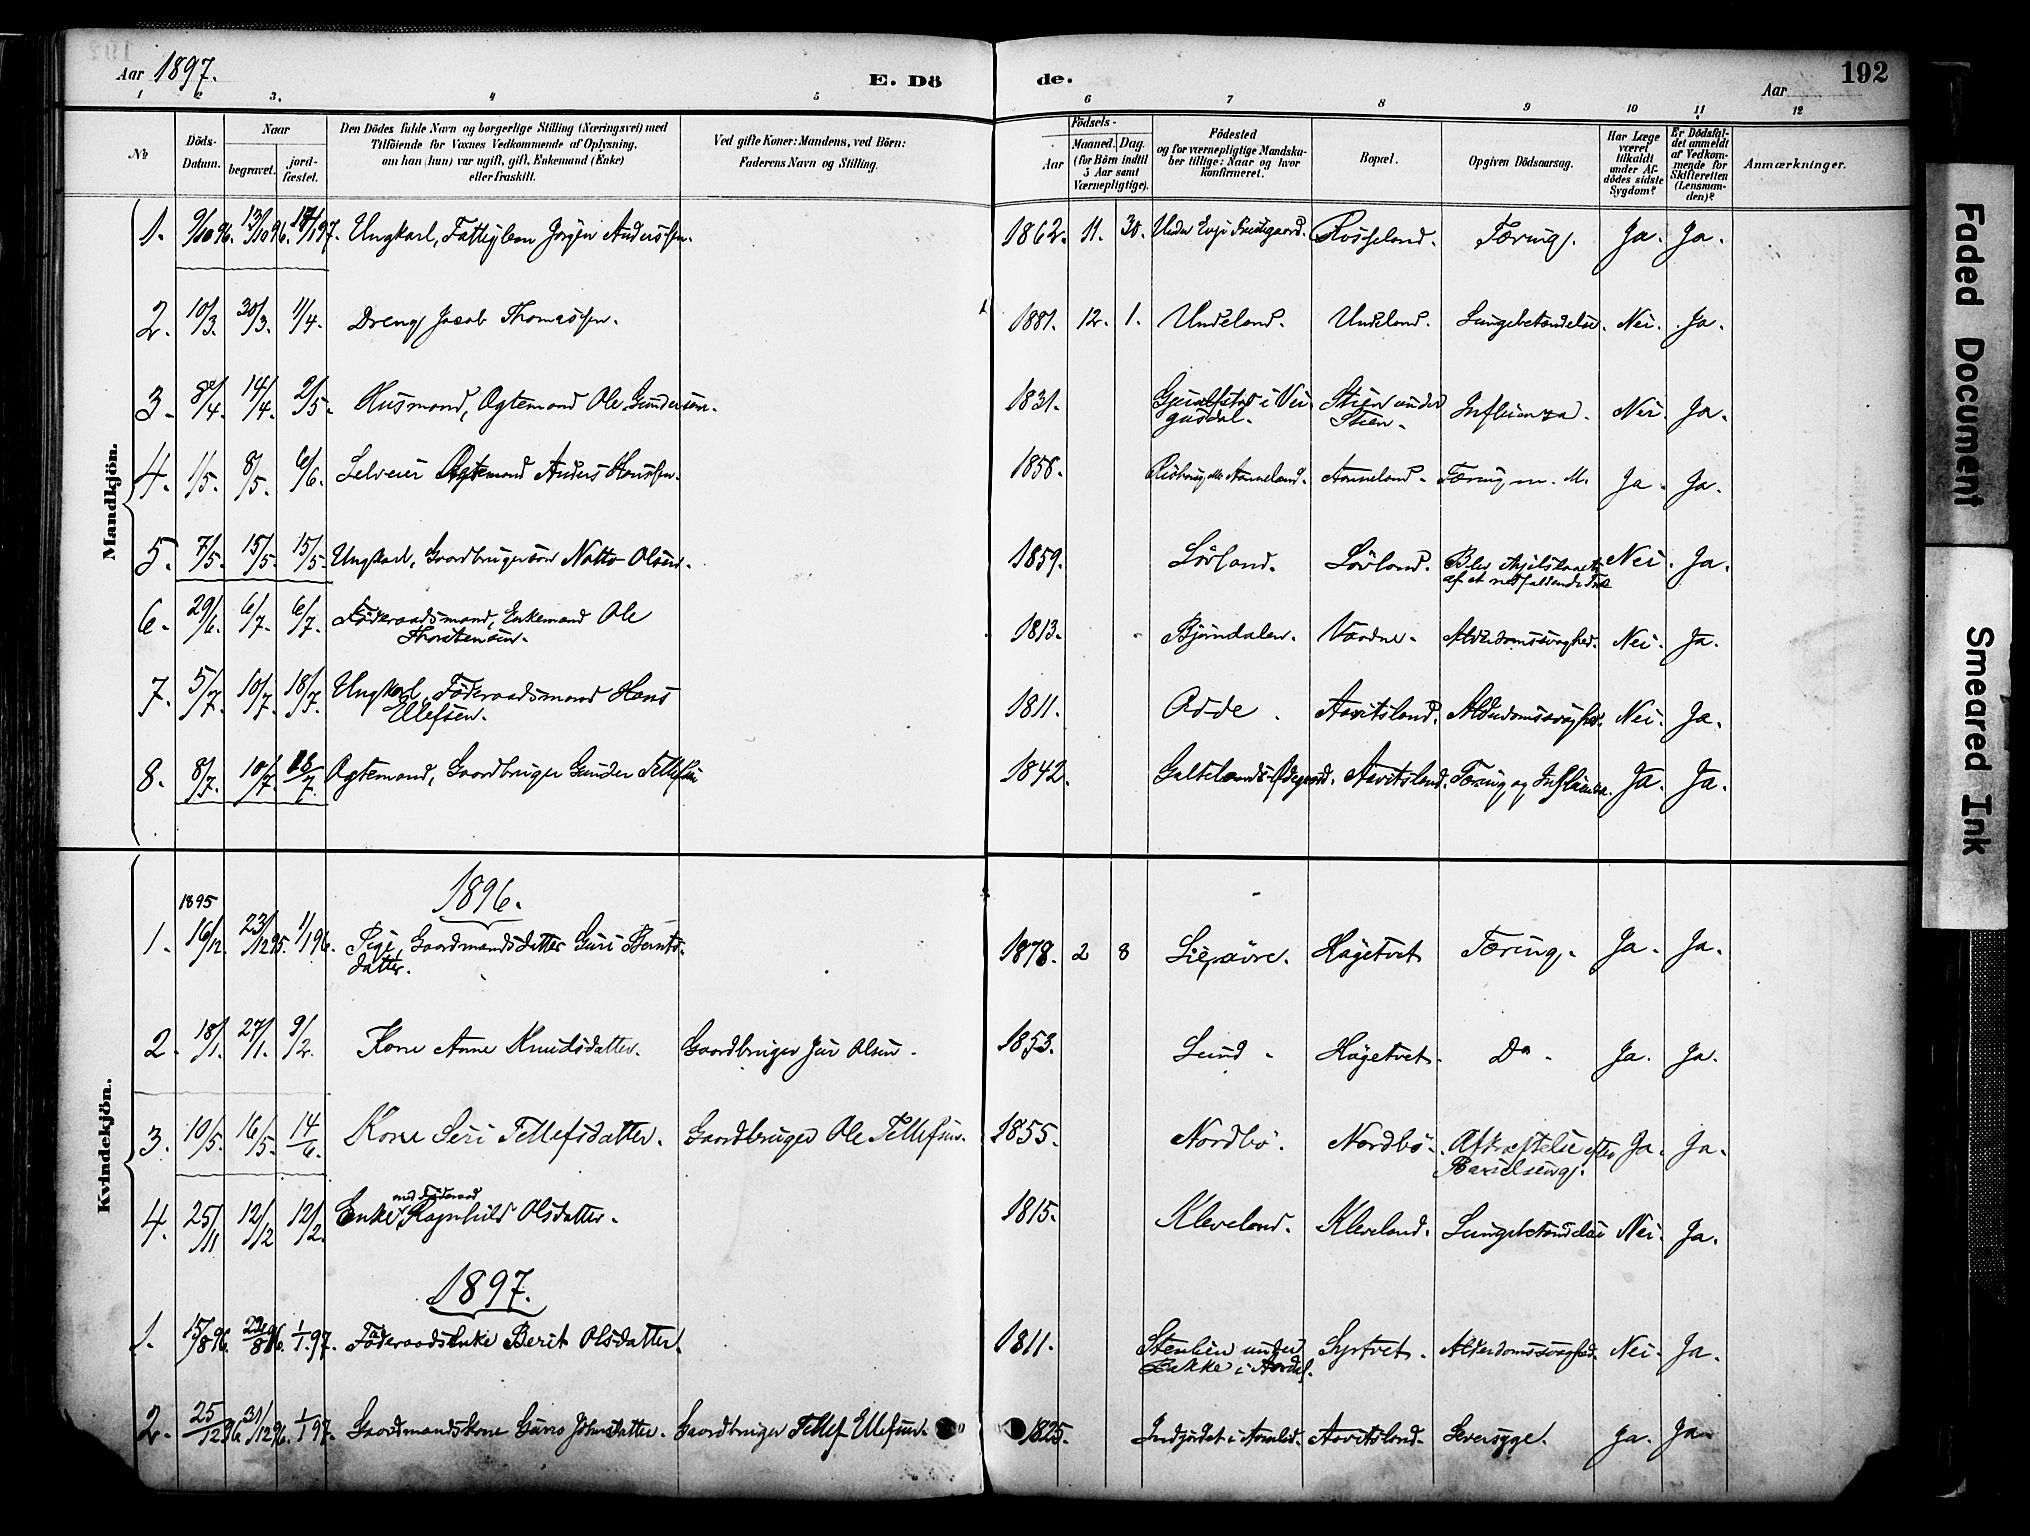 Aar 1897. E. Dö de. Aar 192
1 2 3. 4 5 6 7 8 9 10 11 12
№ Döds-Datum. Naar begravet. jord-fæstet. Den Dödes fulde Navn og borgerlige Stilling (Næringsvei) med Tilföiende for Voxnes Vedkommende af Oplysning, om han (hun) var ugift, gift, Enkemand (Enke) eller fraskilt. Ved gifte Koner: Mandens, ved Börn: Faderens Navn og Stilling. Födsels- Aar Maaned. Dag. (for Börn indtil 5 Aar samt Værnepligtige). Födested og for værnepligtige Mandskaber tillige: Naar og hvor konfirmeret. Bopæl. Opgiven Dödsaarsag. Har Læge været tilkaldt under Afdödes sidste Sygdom? Er Dödsfaldet anmeldt af Vedkommende for Skifteretten (Lensmanden)? Anmærkninger.
Mandkjön.
1. 9/10 96. 13/10 96. 17/1 97. Ungkarl, Fattiglem Jörgen Anderssen. 1862. 11. 30. Under Evje Præstgaard. Rosseland. Tæring. Ja. Ja.
2. 10/3. 30/3. 11/4. Dreng Jacob Thomassen. 1881. 12. 1. Undeland. Undeland. Lungebetændelse. Nei. Ja.
3. 8/4. 14/4. 2/5. Husmand, Ægtemand Ole Gundersen. 1831. i Vei-
gusdal. Stien under
Stien. Influenza. Nei. Ja.
4. 1/5. 8/5. 6/6. Selveier Ægtemand Anders Hanssen. 1858. Aanneland. Aanneland. Tæring m. M. Ja. Ja.
5. 7/5. 15/5. 15/5. Ungkarl, Gaardbrugersön Olsen. 1859. Lövland. Lövland. Blev ihjelslaaet
af et nedfaldende Træ Nei. Ja.
6. 29/6. 6/7. 6/7. Föderaadsmand, Enkemand Ole
Thorstensen. 1813. Bjöndalen. Alderdomssvaghed. Nei. Ja.
7. 5/7. 10/7. 18/7. Ungkarl, Föderaadsmand Hans
Ellefsen. 1811. Odde. Aavitsland. Alderdomssvaghed. Nei. Ja.
8. 8/7. 10/7. 18/7. Ægtemand, Gaardbruger Gunder Tellefsen 1842. Galtelands-Ödegaard. Aavitsland. Tæring og Influenza. Ja. Ja.
Kvindekjön.
1896.
1895
1. 16/12. 23/12 95. 1/1 96. Pige, Gaardmandsdatter Guri Berntsdatter. 1878. 2 8 Högetvet Tæring. Ja. Ja.
2. 18/1. 27/1. 9/2. Kone Anne Knudsdatter. Gaardbruger Jens Olsen. 1853. Lund. Högetvet. Do. Ja. Ja.
3. 10/5. 16/5. 14/6. Kone Siri Tellefsdatter. Gaardbruger Ole Tellefsen. 1855. Nordbö. Nordbö. Afkræftelse efter
Barselseng. Ja. Ja.
med Föderaad
4. 25/11 12/12 12/2. Enke Ragnhild Olsdatter. 1815. Kleveland. Kleveland. Lungebetændelse Nei. Ja.
1897.
1. 15/8 96. 22/8 96. 1/1 97. Föderaadsenke Berit Olsdatter. 1811. Stenlien under
Bakke i Aardal. Syrtvet. Alderdomssvaghed. Nei. Ja.
2. 25/12 96 31/12 96. 1/1 97. Gaardmandskone Guro Johnsdatter. Gaardbruger Tellef Ellefsen. 1825. i Aamlid. Aavitsland. Leversyge. Ja. Ja
Faded Document
Smeared Ink